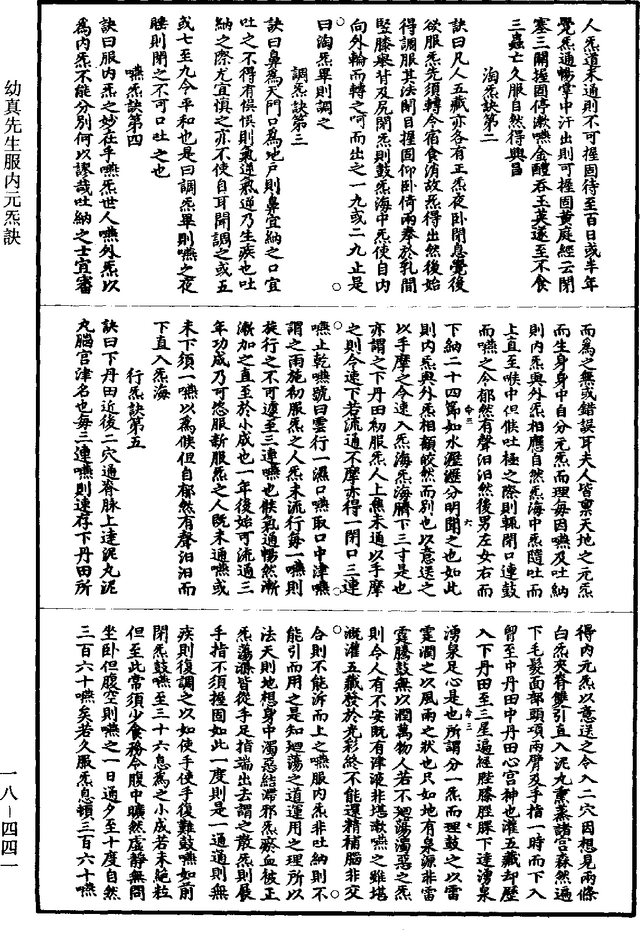 人炁道未通則不可握固待至百日或半年
覺炁通暢掌中汗出則可握固黃庭經云閉
塞三關握固停漱嚥金醴吞玉英遂至不食
三蟲亡久服自然得興昌
淘炁訣第二
訣曰凡人五藏亦各有正炁夜臥閉息覺後
欲服炁先須轉令宿食消故炁得出然後始
得調服其法閉目握固仰臥倚兩拳於乳間
竪膝舉背及尻閉炁則鼓炁海中炁使自內
向外輪而轉之呵而出之一九或二九止是
曰淘炁畢則調之
調炁訣第三
訣曰鼻為天門口為地戶則鼻宜納之口宜
吐之不得有悞悞則氣逆氣逆乃生疾也吐
納之際尤宜慎之亦不使自耳聞調之或五
或七至九令平和也是曰調炁畢則嚥之夜
睡則閉之不可口吐之也
嚥炁訣第四
訣曰服內炁之妙在乎嚥炁世人嚥外炁以
為內炁不能分別何以謬哉吐納之士宜審
而為之無或錯誤耳夫人皆稟天地之元炁
而生身身中自分元炁而理每因嚥及吐納
則內炁與外炁相應自然炁海中炁隨吐而
上直至喉中但候吐極之際則輒閉口連鼓
而嚥之令郁然有聲汩汩然後男左女右而
下納二十四節如水瀝瀝分明聞之也如此
則內炁與外炁相顧皎然而別也以意送之
以手摩之令速入炁海炁海臍下三寸是也
亦謂之下丹田初服炁人上焦未通以手摩
之則令速下若流通不摩亦得一閉口三連
嚥止乾嚥號曰雲行一濕口嚥取口中津嚥
謂之雨施初服炁之人炁未流行每一嚥則
旋行之不可遽至三連嚥也候氣通暢然漸
漸加之直至於小成也一年後始可流通三
年功成乃可恣服新服炁之人既未通嚥或
未下須一嚥以為候但自郁然有聲汩汩而
下直入炁海
行炁訣第五
訣曰下丹田近後二穴通脊脉上達泥丸泥
丸腦宮津名也每三連嚥則速存下丹田所
得內元炁以意送之令入二穴因想見兩條
白炁夾脊雙引直入泥丸熏蒸諸宮森然遍
下毛髮面部頭項兩臂及手指一時而下入
胷至中丹田中丹田心宮神也灌五藏却歷
入下丹田至三星遍經䏶膝脛踝下達湧泉
湧泉足心是也所謂分一炁而理鼓之以雷
霆潤之以風雨之狀也只如地有泉源非雷
霆騰鼓無以潤萬物人若不廻蕩濁惡之炁
則令人有不安既有津液非堪漱嚥之雖堪
溉灌五藏發於光彩終不能還精補腦非交
合則不能泝而上之嚥服內炁非吐納則不
能引而用之是知廻蕩之道運用之理所以
法天則地想身中濁惡結滯邪炁瘀血被正
炁蕩滌皆從手足指端出去謂之散炁則展
手指不須握固如此一度則是一通通則無
疾則復調之以如使手使手復難鼓嚥如前
閉炁鼓嚥至三十六息為之小成若未絕粒
但至此常須少食務令腹中曠然虛靜無問
坐臥但腹空則嚥之一日通夕至十度自然
三百六十嚥矣若久服炁息頓三百六十嚥
幼真先生服內元炁訣
一八-四四一